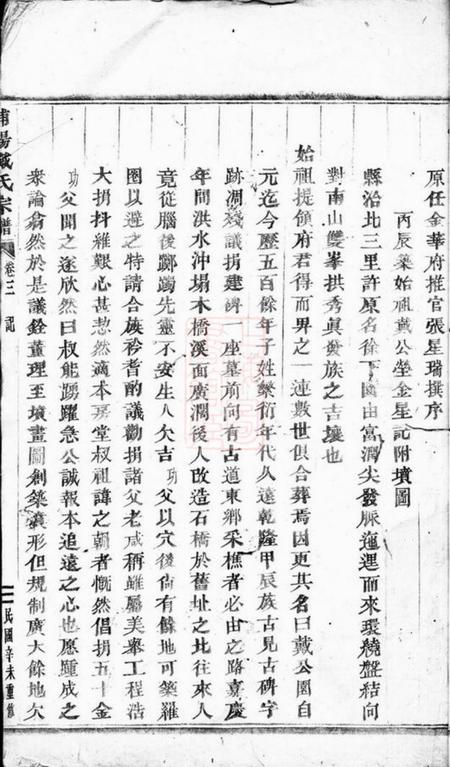 原任金華府推官張星瑞撰序
丙辰築始祖戴公塋金星記附墳圖
縣治北三里許原名徐下園由富潤尖發脈迤逦而來環繞盤結向
對南山雙峯拱秀真發族之吉壤也
始祖提領府君得而界之一連數世俱合葬焉因更其名曰戴公園自
元迄今歷五百餘年子姓蕃衍年代久遠乾隆甲辰族古見古碑字
跡凋殘議捐建碑一座墓前向有古道東鄉采樵者必由之路嘉慶
年間洪水沖塌木橋溪面廣濶後人改造石橋於舊址之北往來人
竟從腦後躑躅先靈不安生人欠吉功父以穴後尚有餘地可築羅
圈以避之特請合族衿耆酌議勸捐諸父老咸稱雖屬美舉工程浩
大捐抖維艱心甚愁然適本房堂叔祖諱之朝者慨然倡捐五十金
功父聞之遂欣然曰叔能踴躍急公誠報本追遠之心也愿踵成之
衆論翕然於是議銓董理至墳畫圖創築囊形但規制廣大餘地欠
浦陽戴氏宗譜 卷三 記
民國辛未重修